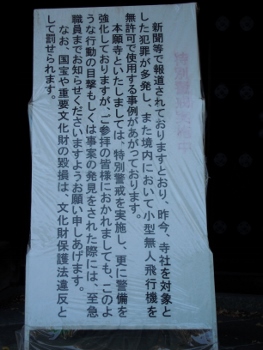 特別警戒実施中
新聞等で報道されておりますとおり、昨今、寺社を対象と
した犯罪が多発し、また境内において小型無人飛行機を
無許可で使用する事例があがっております。
本願寺といたしましては、特別警戒を実施し、更に警備を
強化しておりますが、ご参拝の皆様におかれましても、このよ
うな行動の目撃もしくは事案の発見をされた際には、至急
職員までお知らせくださいますようお願い申しあげます。
なお、国宝や重要文化財の毀損は、文化財保護法違反と
して罰せられます。